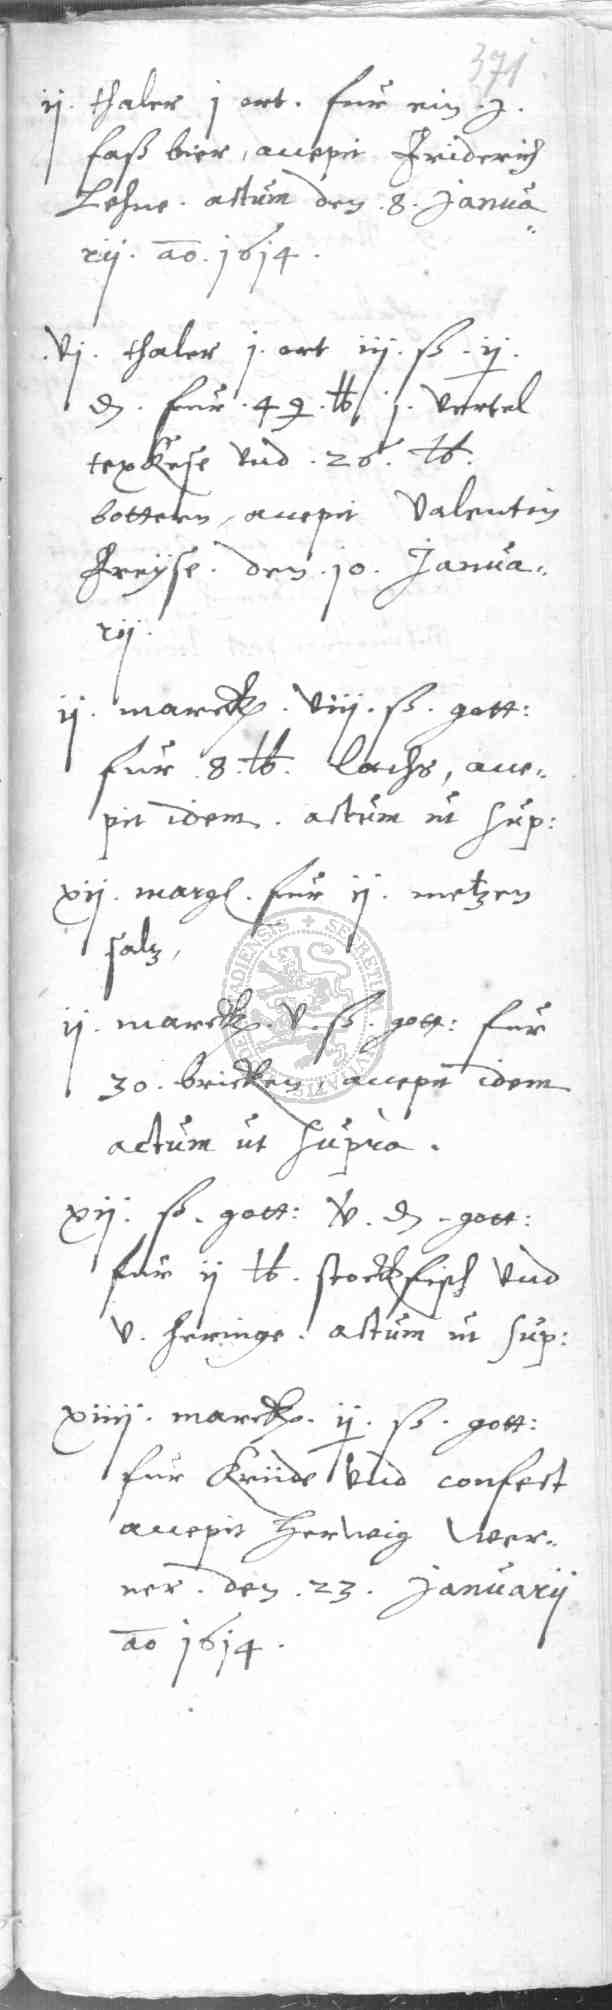 371
ij. thaler j ort. fur ein. j.
faß bier, accepit Friderich
Lehne. actum den. 8. Janua
rij. ao. 1614.
vj. thaler j. ort iij. ß. ij.
₰. fur. 49. ℔. j. viertel
texKese vnd. 26. ℔.
bottern, accepit Valentin
Freyse. den. 10. Janua-
rij.
ij. marck. viij. ß. gott:
fur. 8. ℔. lachs, acce-
pit idem. actum ut sup:
xij. margl. fur ij. metzen
saltz,
ij. marck. v. ß. gott: fur
30. bricken, accepit idem
actum ut supra.
xij. ß. gott: v. ₰. gott:
fur ij ℔. stockfisch vnd
v. heringe. actum ut sup:
xiiij. marck. ij. ß. gott:
fur Krüde vnd confect
accepit Herwig Wer-
ner. den. 23. Januarij
ao 1614.